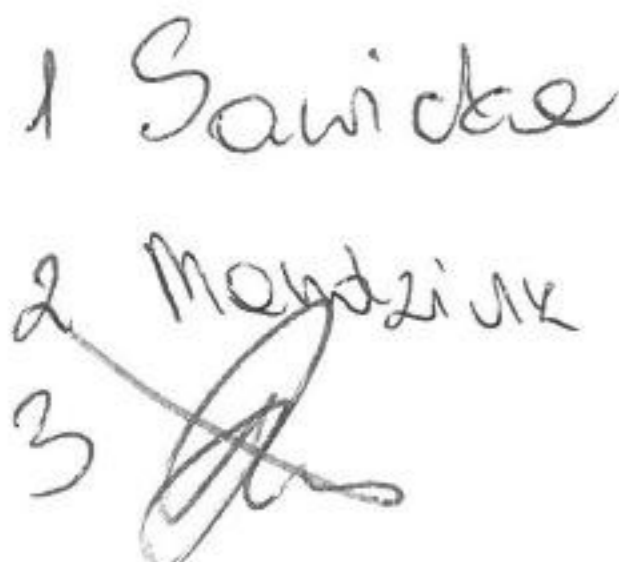 1 Sawicka
2 Mendziuk
3